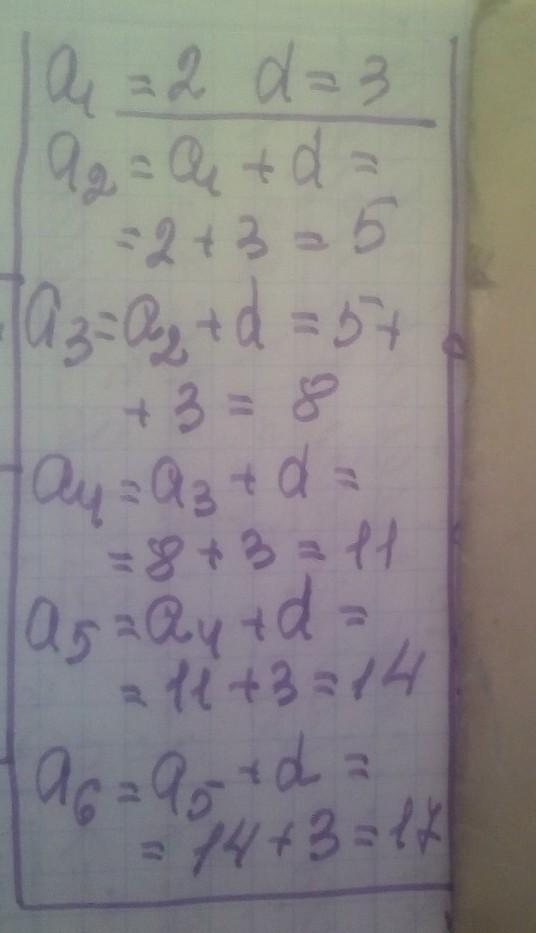 a₁ = 2 d = 3
a₂ = a₁ + d =
= 2 + 3 = 5
a₃ = a₂ + d = 5 +
+ 3 = 8
a₄ = a₃ + d =
= 8 + 3 = 11
a₅ = a₄ + d =
= 11 + 3 = 14
a₆ = a₅ + d =
= 14 + 3 = 17